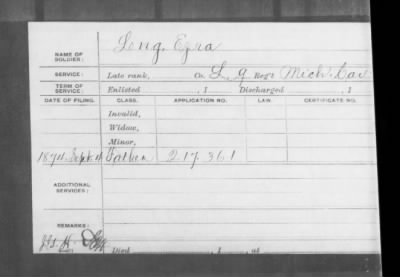 NAME OF SOLDIER: Long, Ezra
SERVICE: Late rank, Co. L, 9 Reg't Mich. Cav
TERM OF SERVICE: Enlisted , 1 Discharged , 1
DATE OF FILING. CLASS. APPLICATION NO. LAW. CERTIFICATE NO.
Invalid,
Widow,
Minor,
1874 Sept 4 Father 217.361
ADDITIONAL SERVICES:
REMARKS:
Died , 1 , at